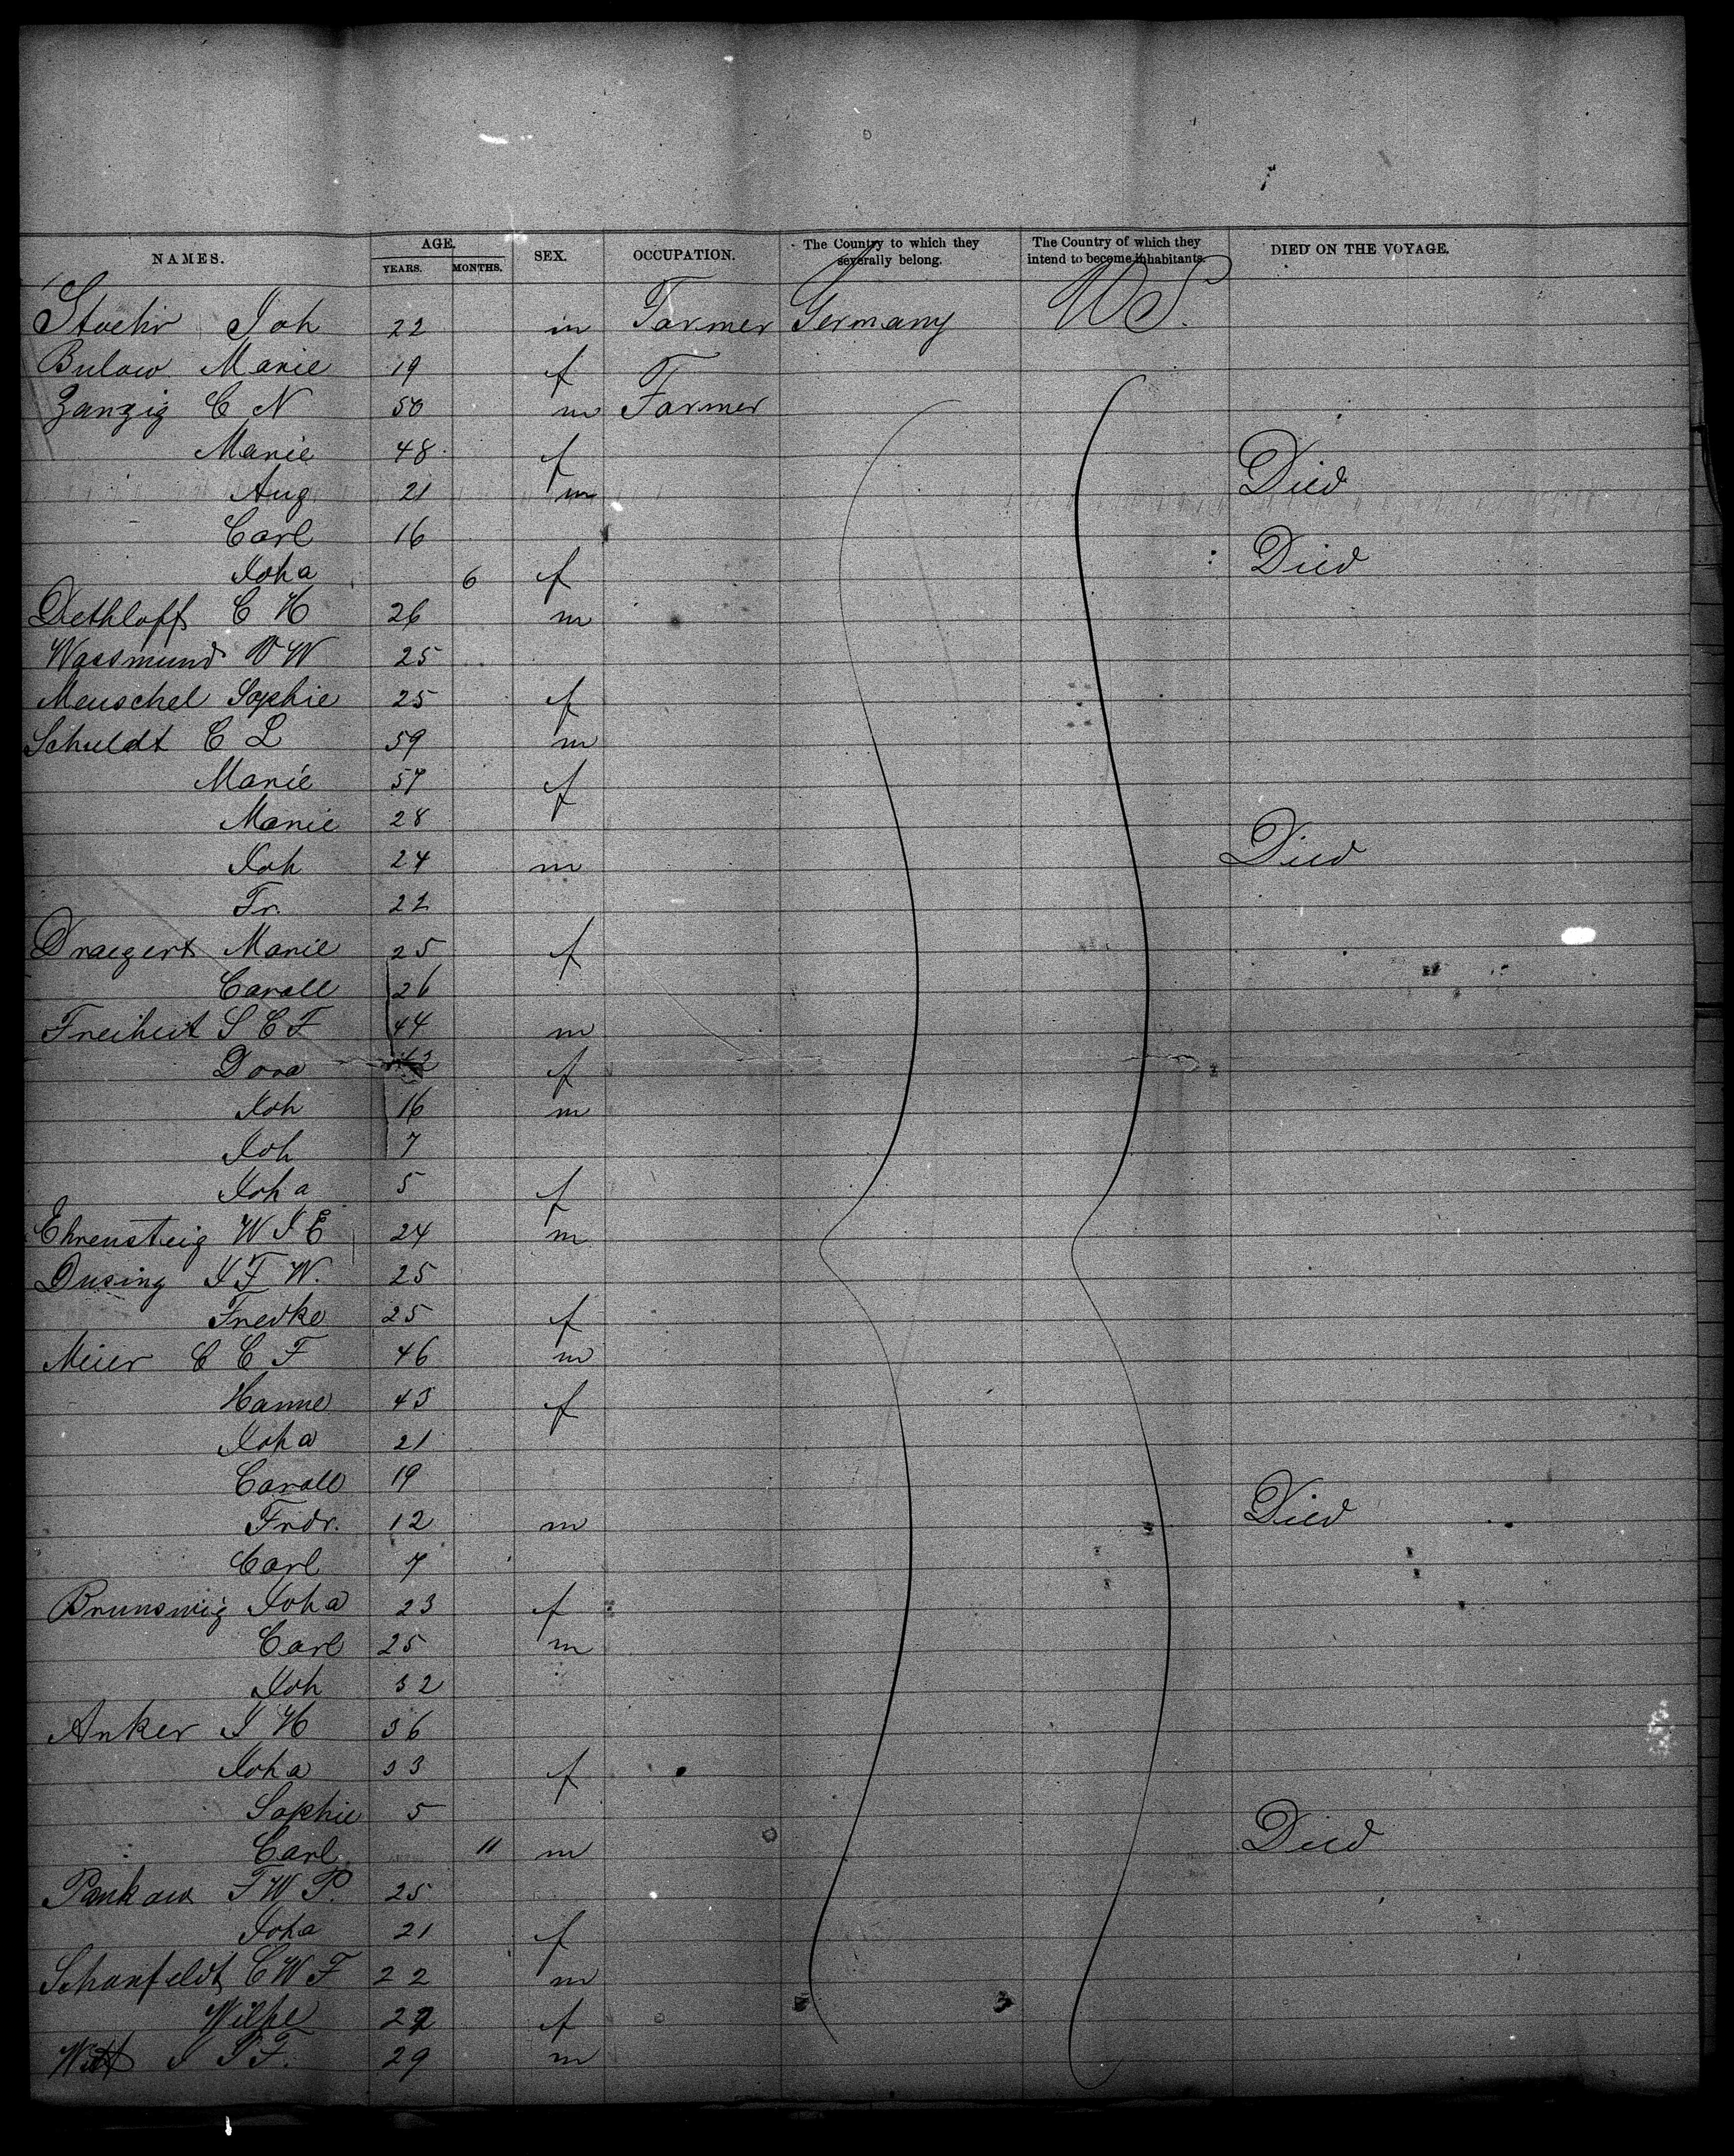 NAMES. AGE. YEARS. MONTHS. SEX. OCCUPATION. The Country to which they severally belong. The Country of which they intend to become inhabitants. DIED ON THE VOYAGE.
Stoehr Joh 22 m Farmer Germany US.
Bulow Marie 19 f
Zanzig C N 50 m Farmer
Marie 48 f
Aug 21 m Died
Carl 16
Joha 6 f Died
Dethloff C H 26 m
Wassmund W 25
Meuschel Sophie 25 f
Schuldt C L 59 m
Marie 57 f
Marie 28
Joh 24 m Died
Fr. 22
Draegert Marie 25 f
Caroll 26
Freiheit S C F 44 m
Dora f
Joh 16 m
Joh 7
Joha 5 f
Ehrensteig W J C 24 m
Dusing J F W. 25
Fredke 25 f
Meier C C F 46 m
Hanne 43 f
Joha 21
Caroll 19
Frdr. 12 m Died
Carl 7
Brunswig Joha 23 f
Carl 25 m
Joh 32
Anker J H 36
Joha 33 f
Sophie 5
Carl 11 m Died
Pankow F W P. 25
Joha 21 f
Schonfeldt C W F 22 m
Wilhe 22 f
Witt J J F. 29 m